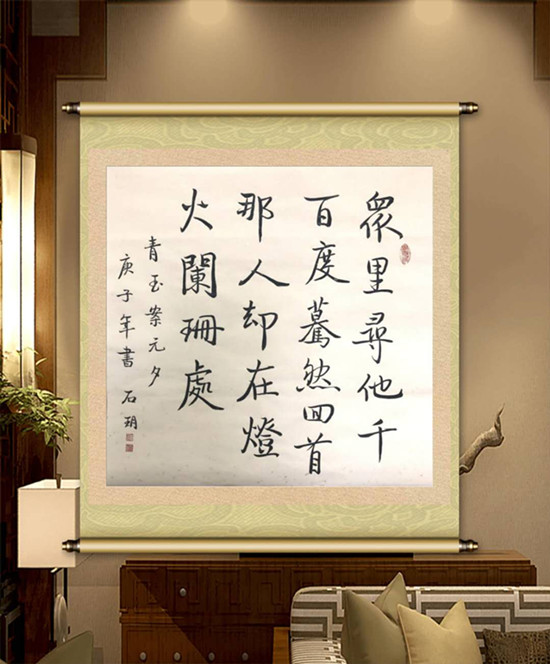 眾里尋他千
百度驀然回首
那人却在燈
火闌珊處
青玉案元夕
庚子年書 石玥